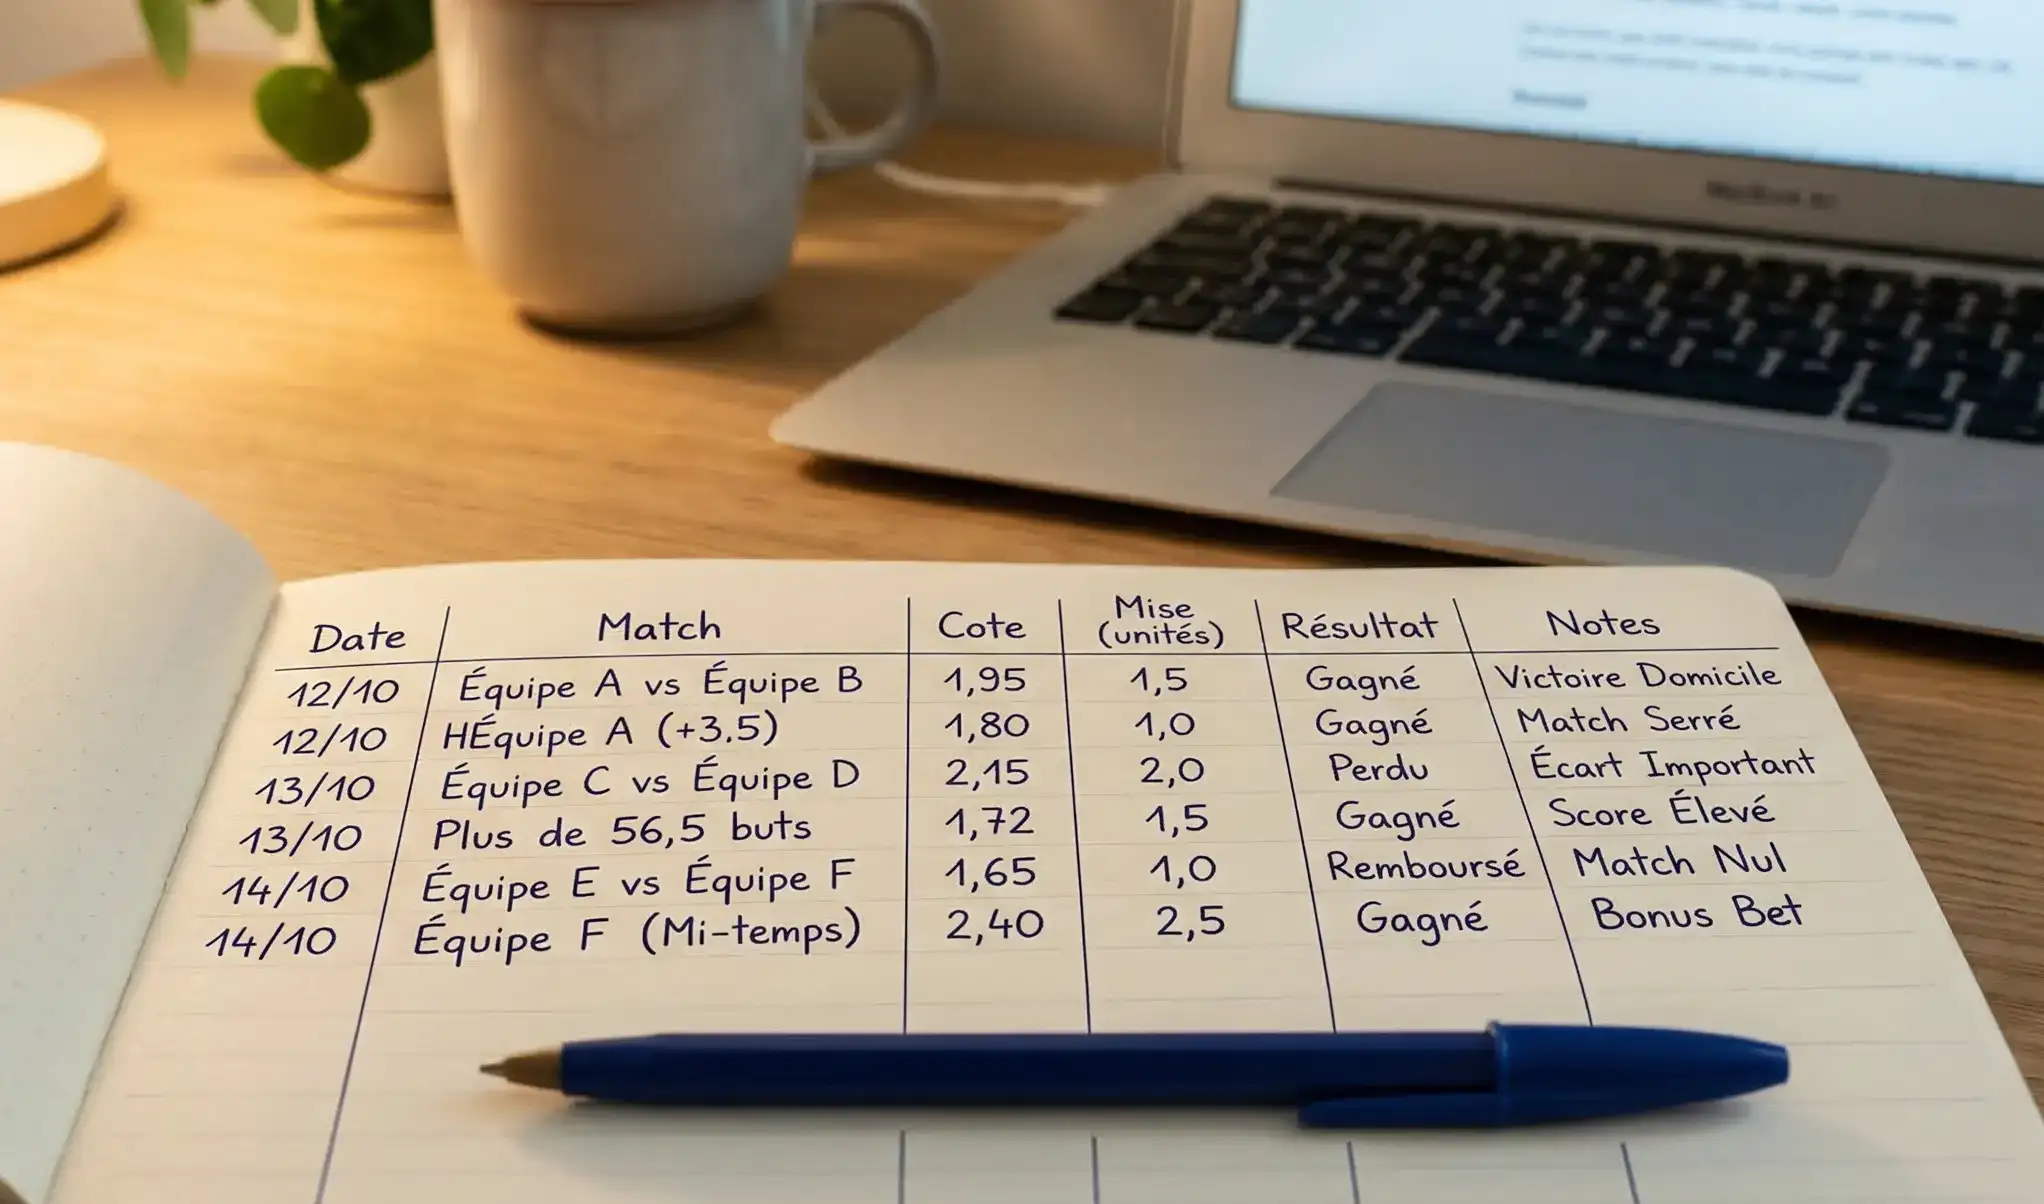 Date Match Cote Mise (unités) Résultat Notes
12/10 Équipe A vs Équipe B 1,95 1,5 Gagné Victoire Domicile
12/10 HÉquipe A (+3.5) 1,80 1,0 Gagné Match Serré
13/10 Équipe C vs Équipe D 2,15 2,0 Perdu Écart Important
13/10 Plus de 56,5 buts 1,72 1,5 Gagné Score Élevé
14/10 Équipe E vs Équipe F 1,65 1,0 Remboursé Match Nul
14/10 Équipe F (Mi-temps) 2,40 2,5 Gagné Bonus Bet